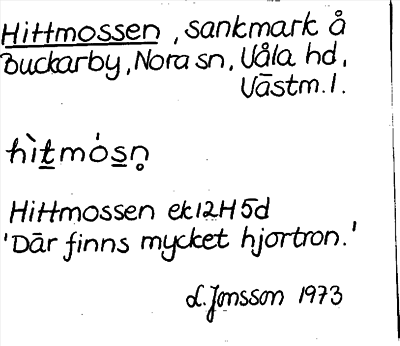 Hittmossen, sankmark å
Buckarby, Nora sn, Våla hd,
Västm. l.
hìt̲mós̲n̥
Hittmossen ek 12H5d
'Där finns mycket hjortron.'
L. Jonsson 1973